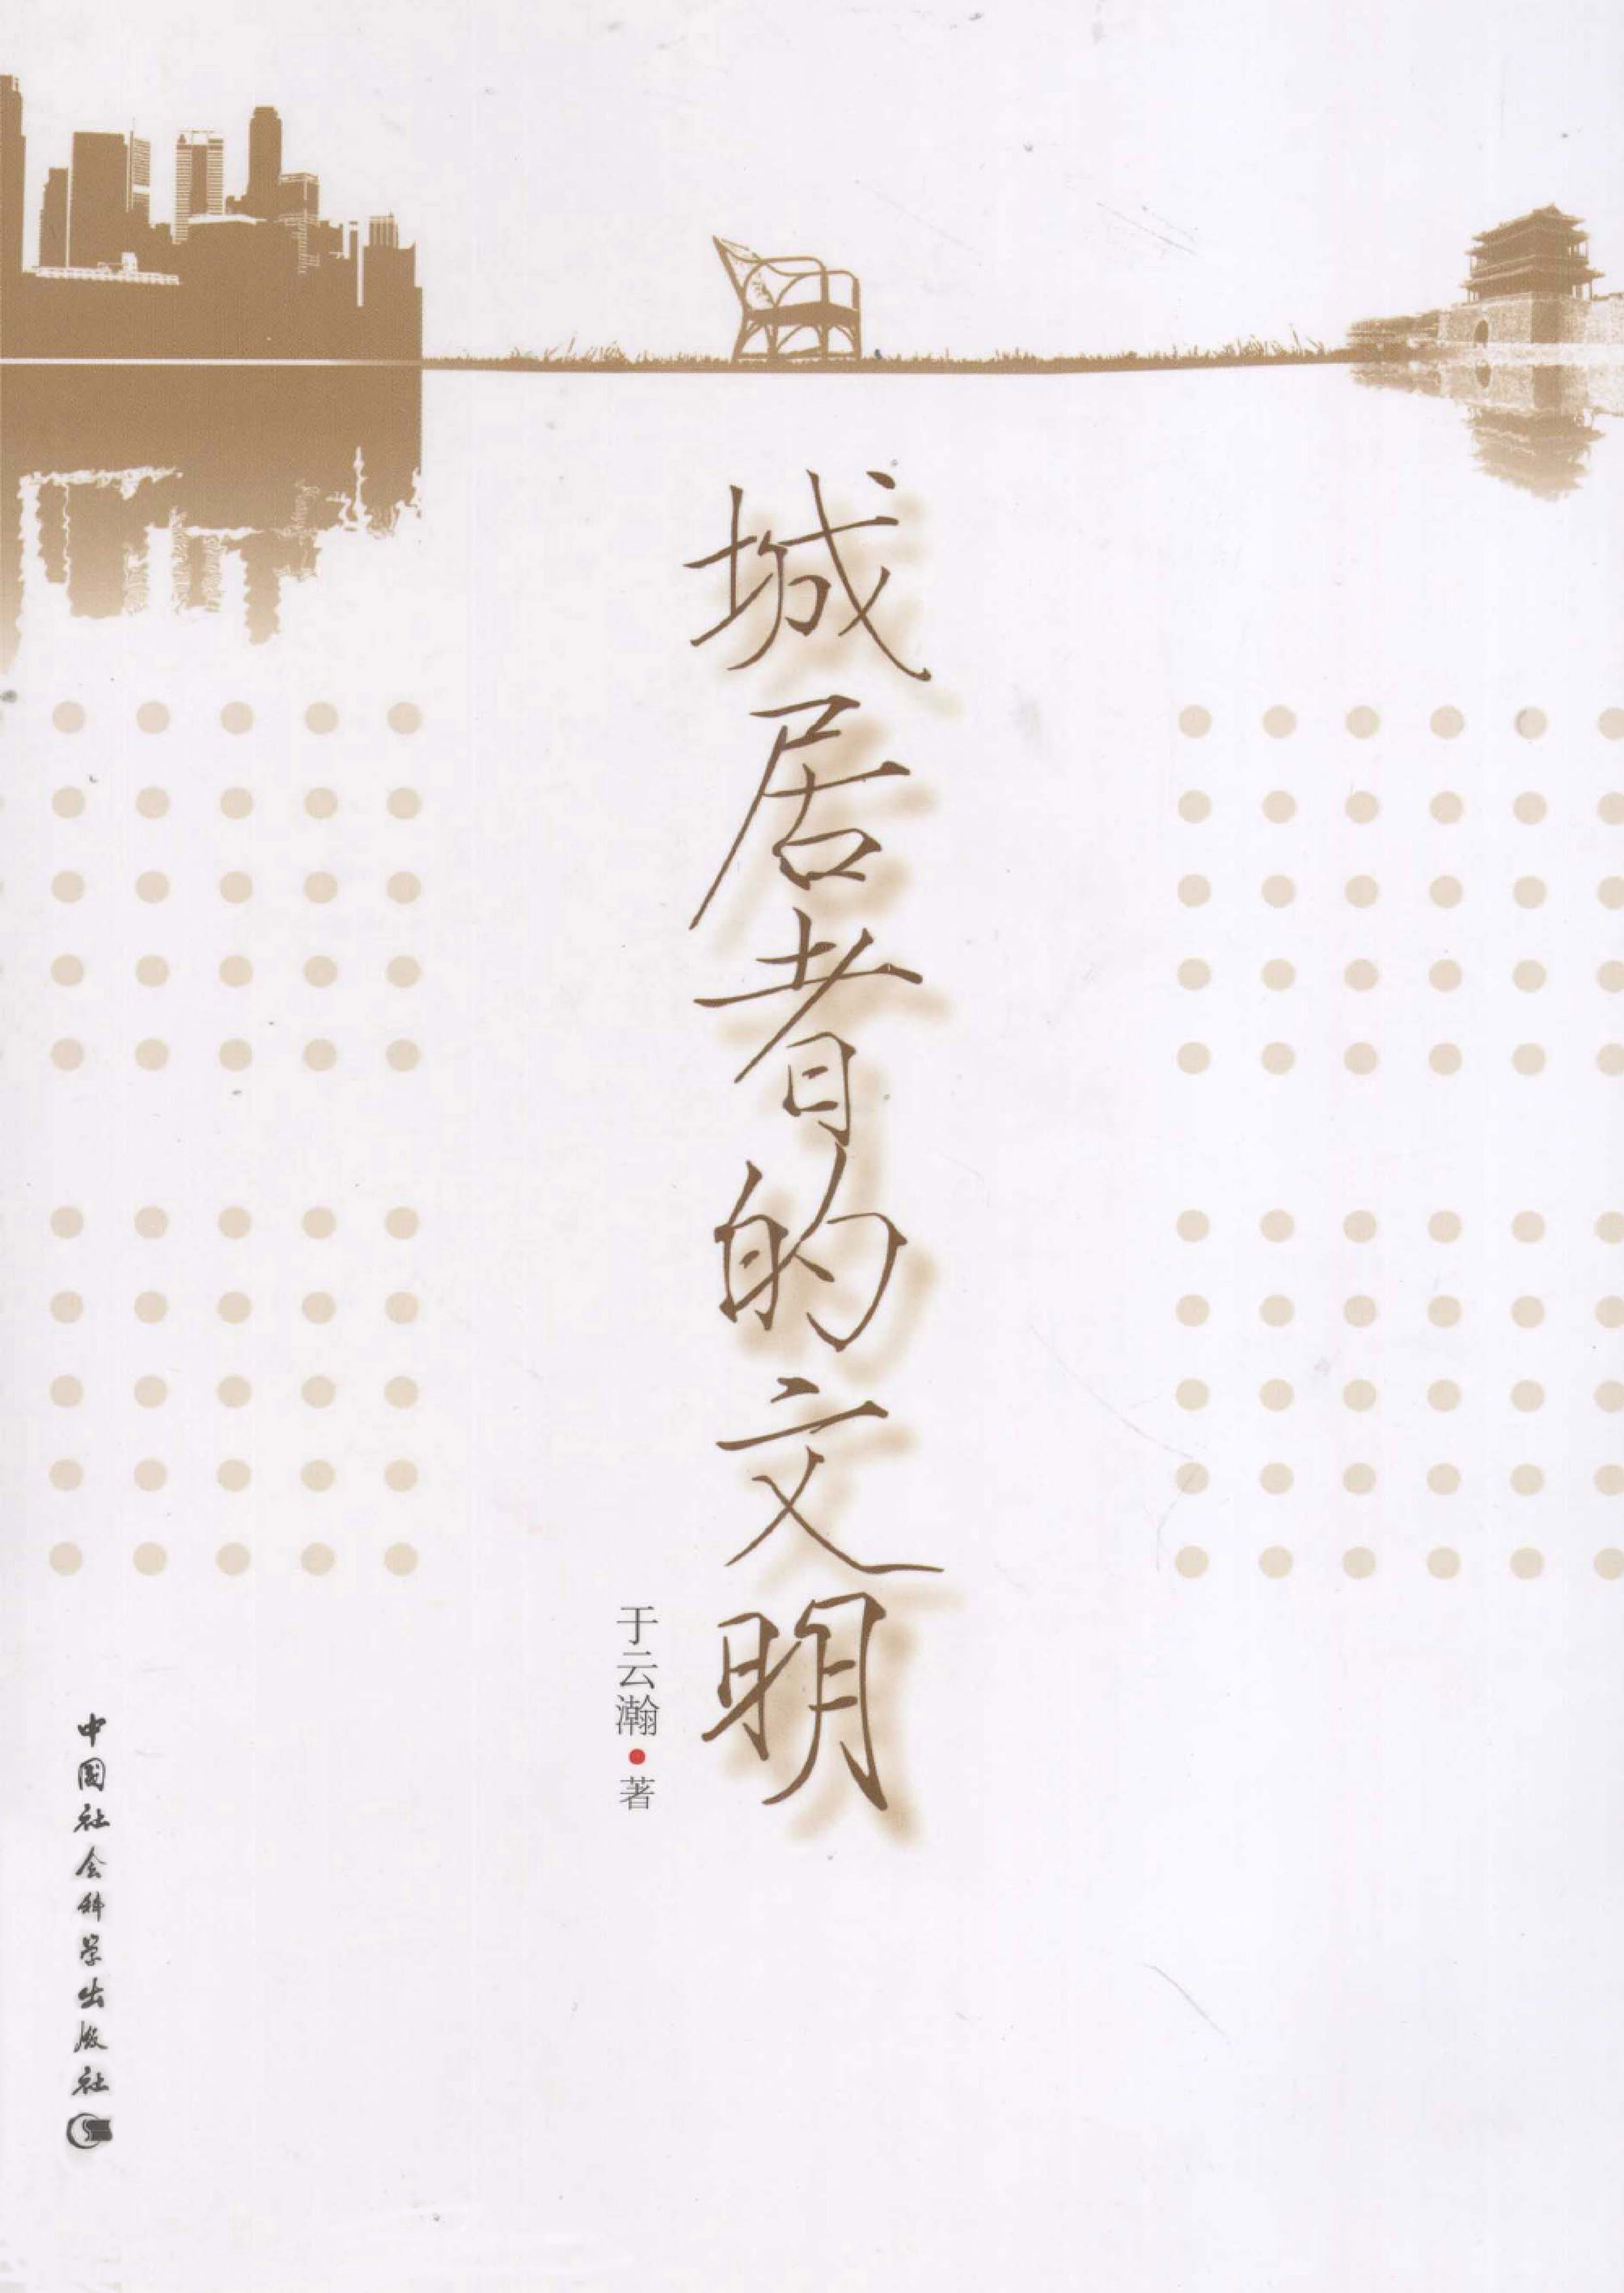 城居者的文明
于云瀚·著
中国社会科学出版社